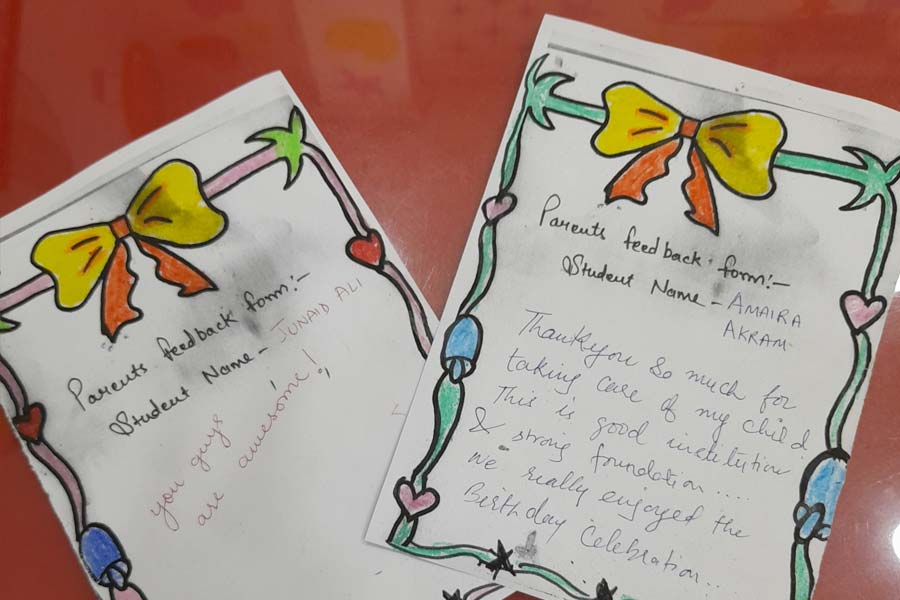 Parents feedback form:-
Student Name - JUNAID ALI
you guys
are awesome!!
Parents feedback form:-
Student Name - AMAIRA
AKRAM
Thankyou so much for
taking care of my child
This is good institution
& strong foundation....
we really enjoyed the
Birthday Celebration..